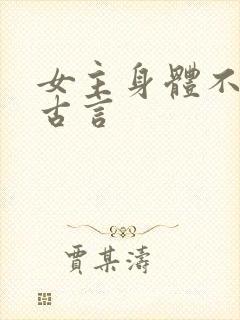 女主身體不
古言
賈某濤